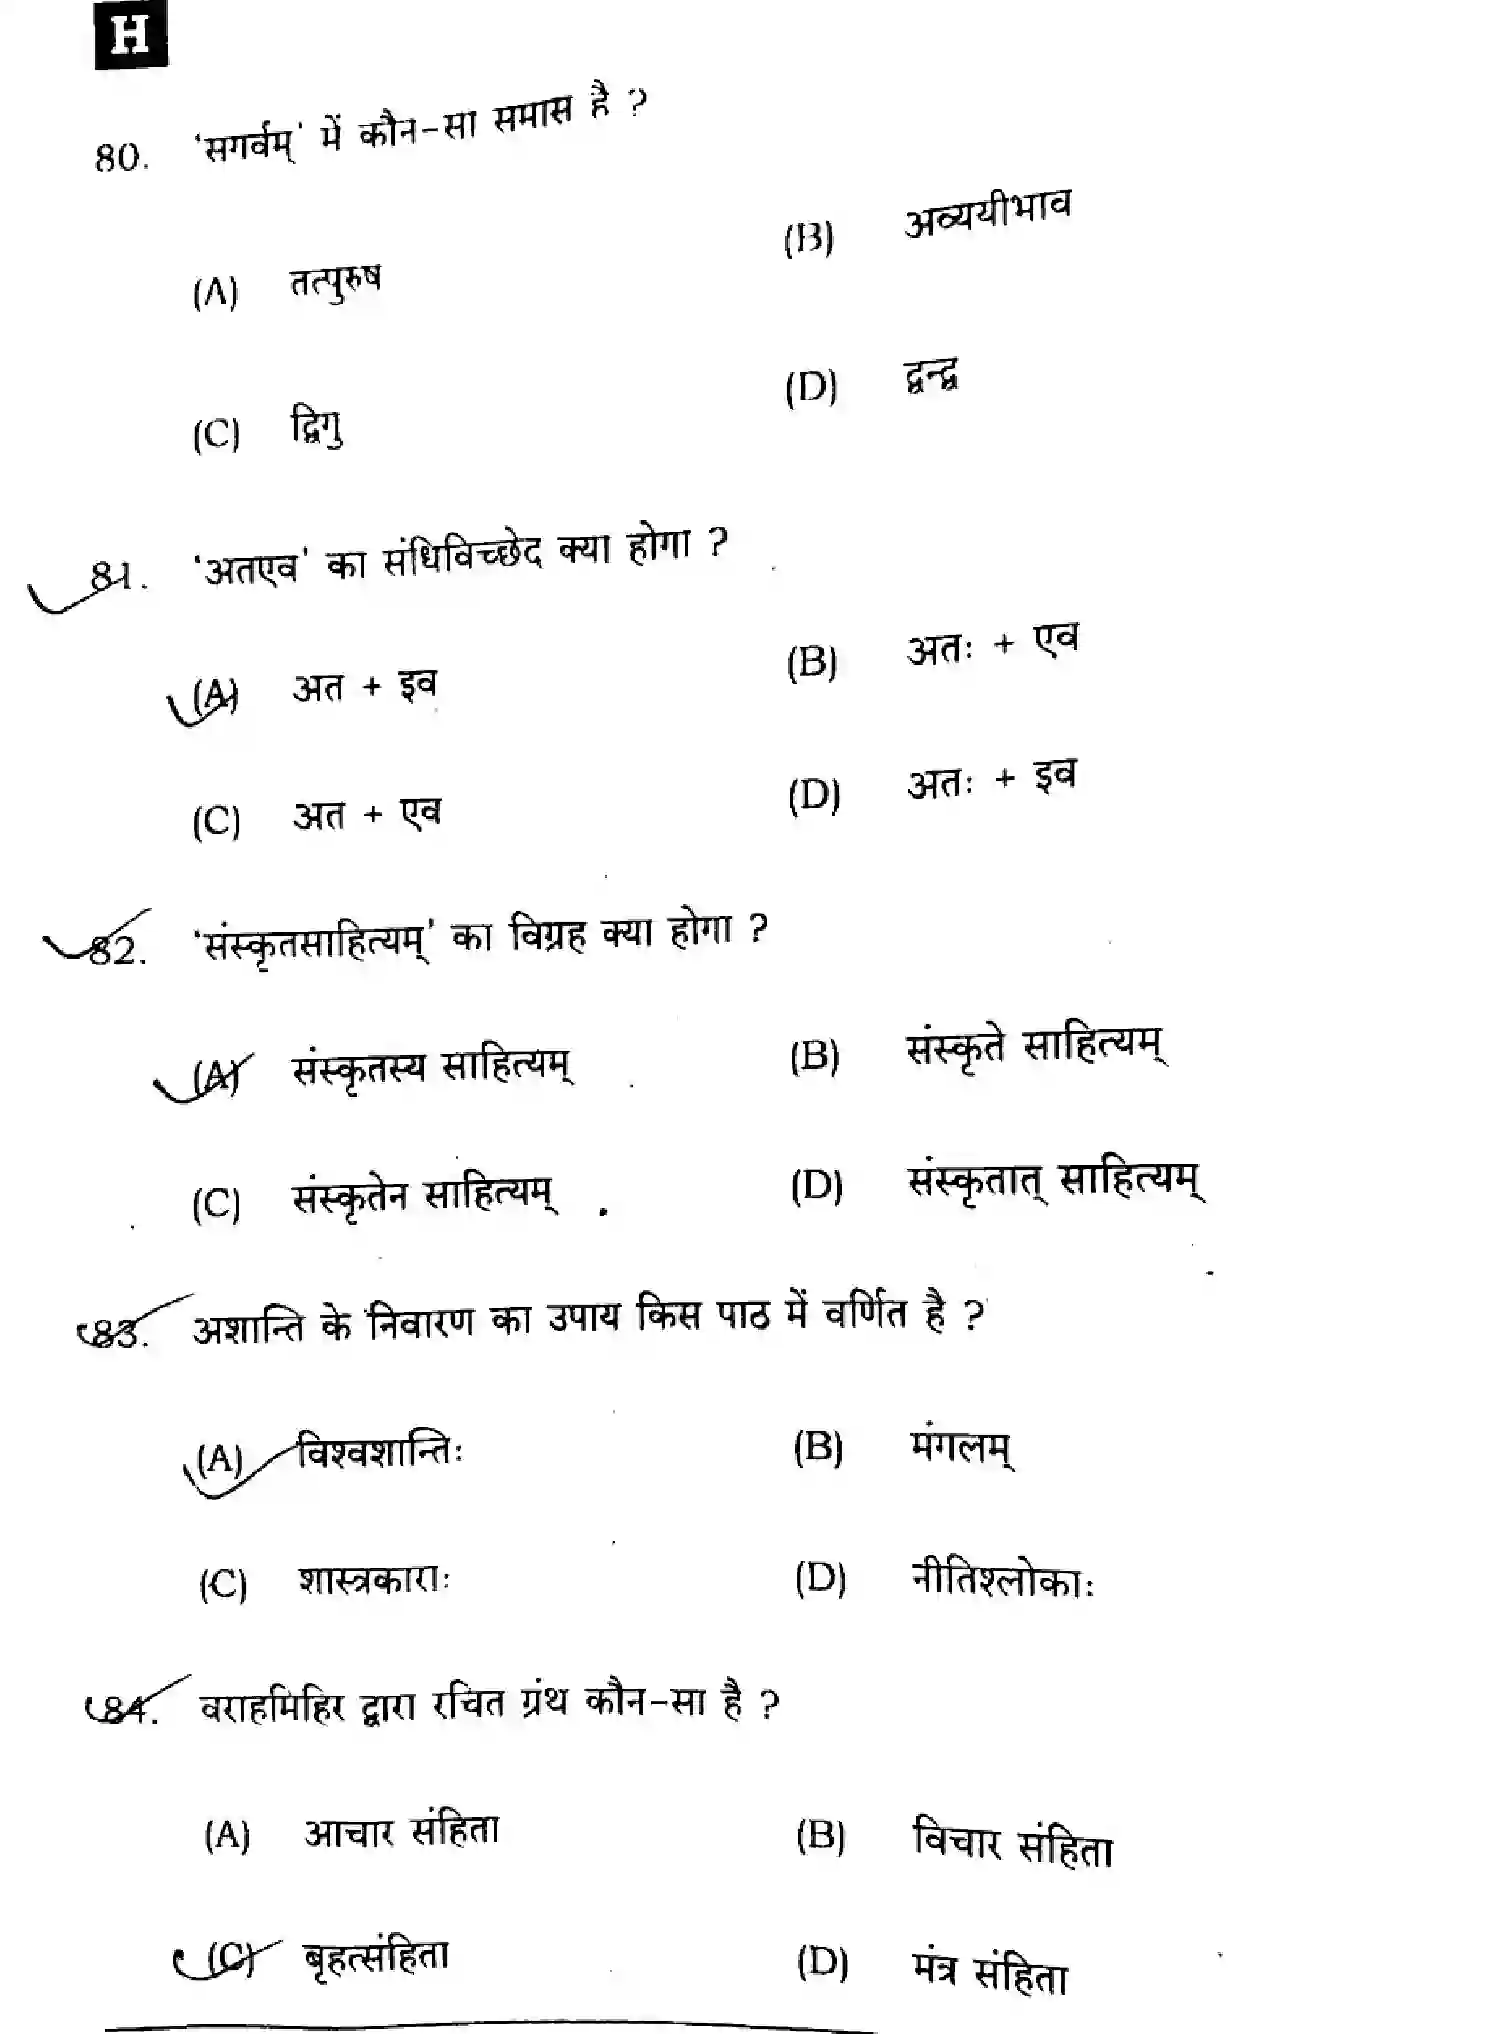 H
80. 'सगर्वम्' में कौन-सा समास है ?
(A) तत्पुरुष (B) अव्ययीभाव
(C) द्विगु (D) द्वन्द्व
81. 'अतएव' का संधिविच्छेद क्या होगा ?
(A) अत + इव (B) अतः + एव
(C) अत + एव (D) अतः + इव
82. 'संस्कृतसाहित्यम्' का विग्रह क्या होगा ?
(A) संस्कृतस्य साहित्यम् (B) संस्कृते साहित्यम्
(C) संस्कृतेन साहित्यम् (D) संस्कृतात् साहित्यम्
83. अशान्ति के निवारण का उपाय किस पाठ में वर्णित है ?
(A) विश्वशान्तिः (B) मंगलम्
(C) शास्त्रकाराः (D) नीतिश्लोकाः
84. वराहमिहिर द्वारा रचित ग्रंथ कौन-सा है ?
(A) आचार संहिता (B) विचार संहिता
(C) बृहत्संहिता (D) मंत्र संहिता